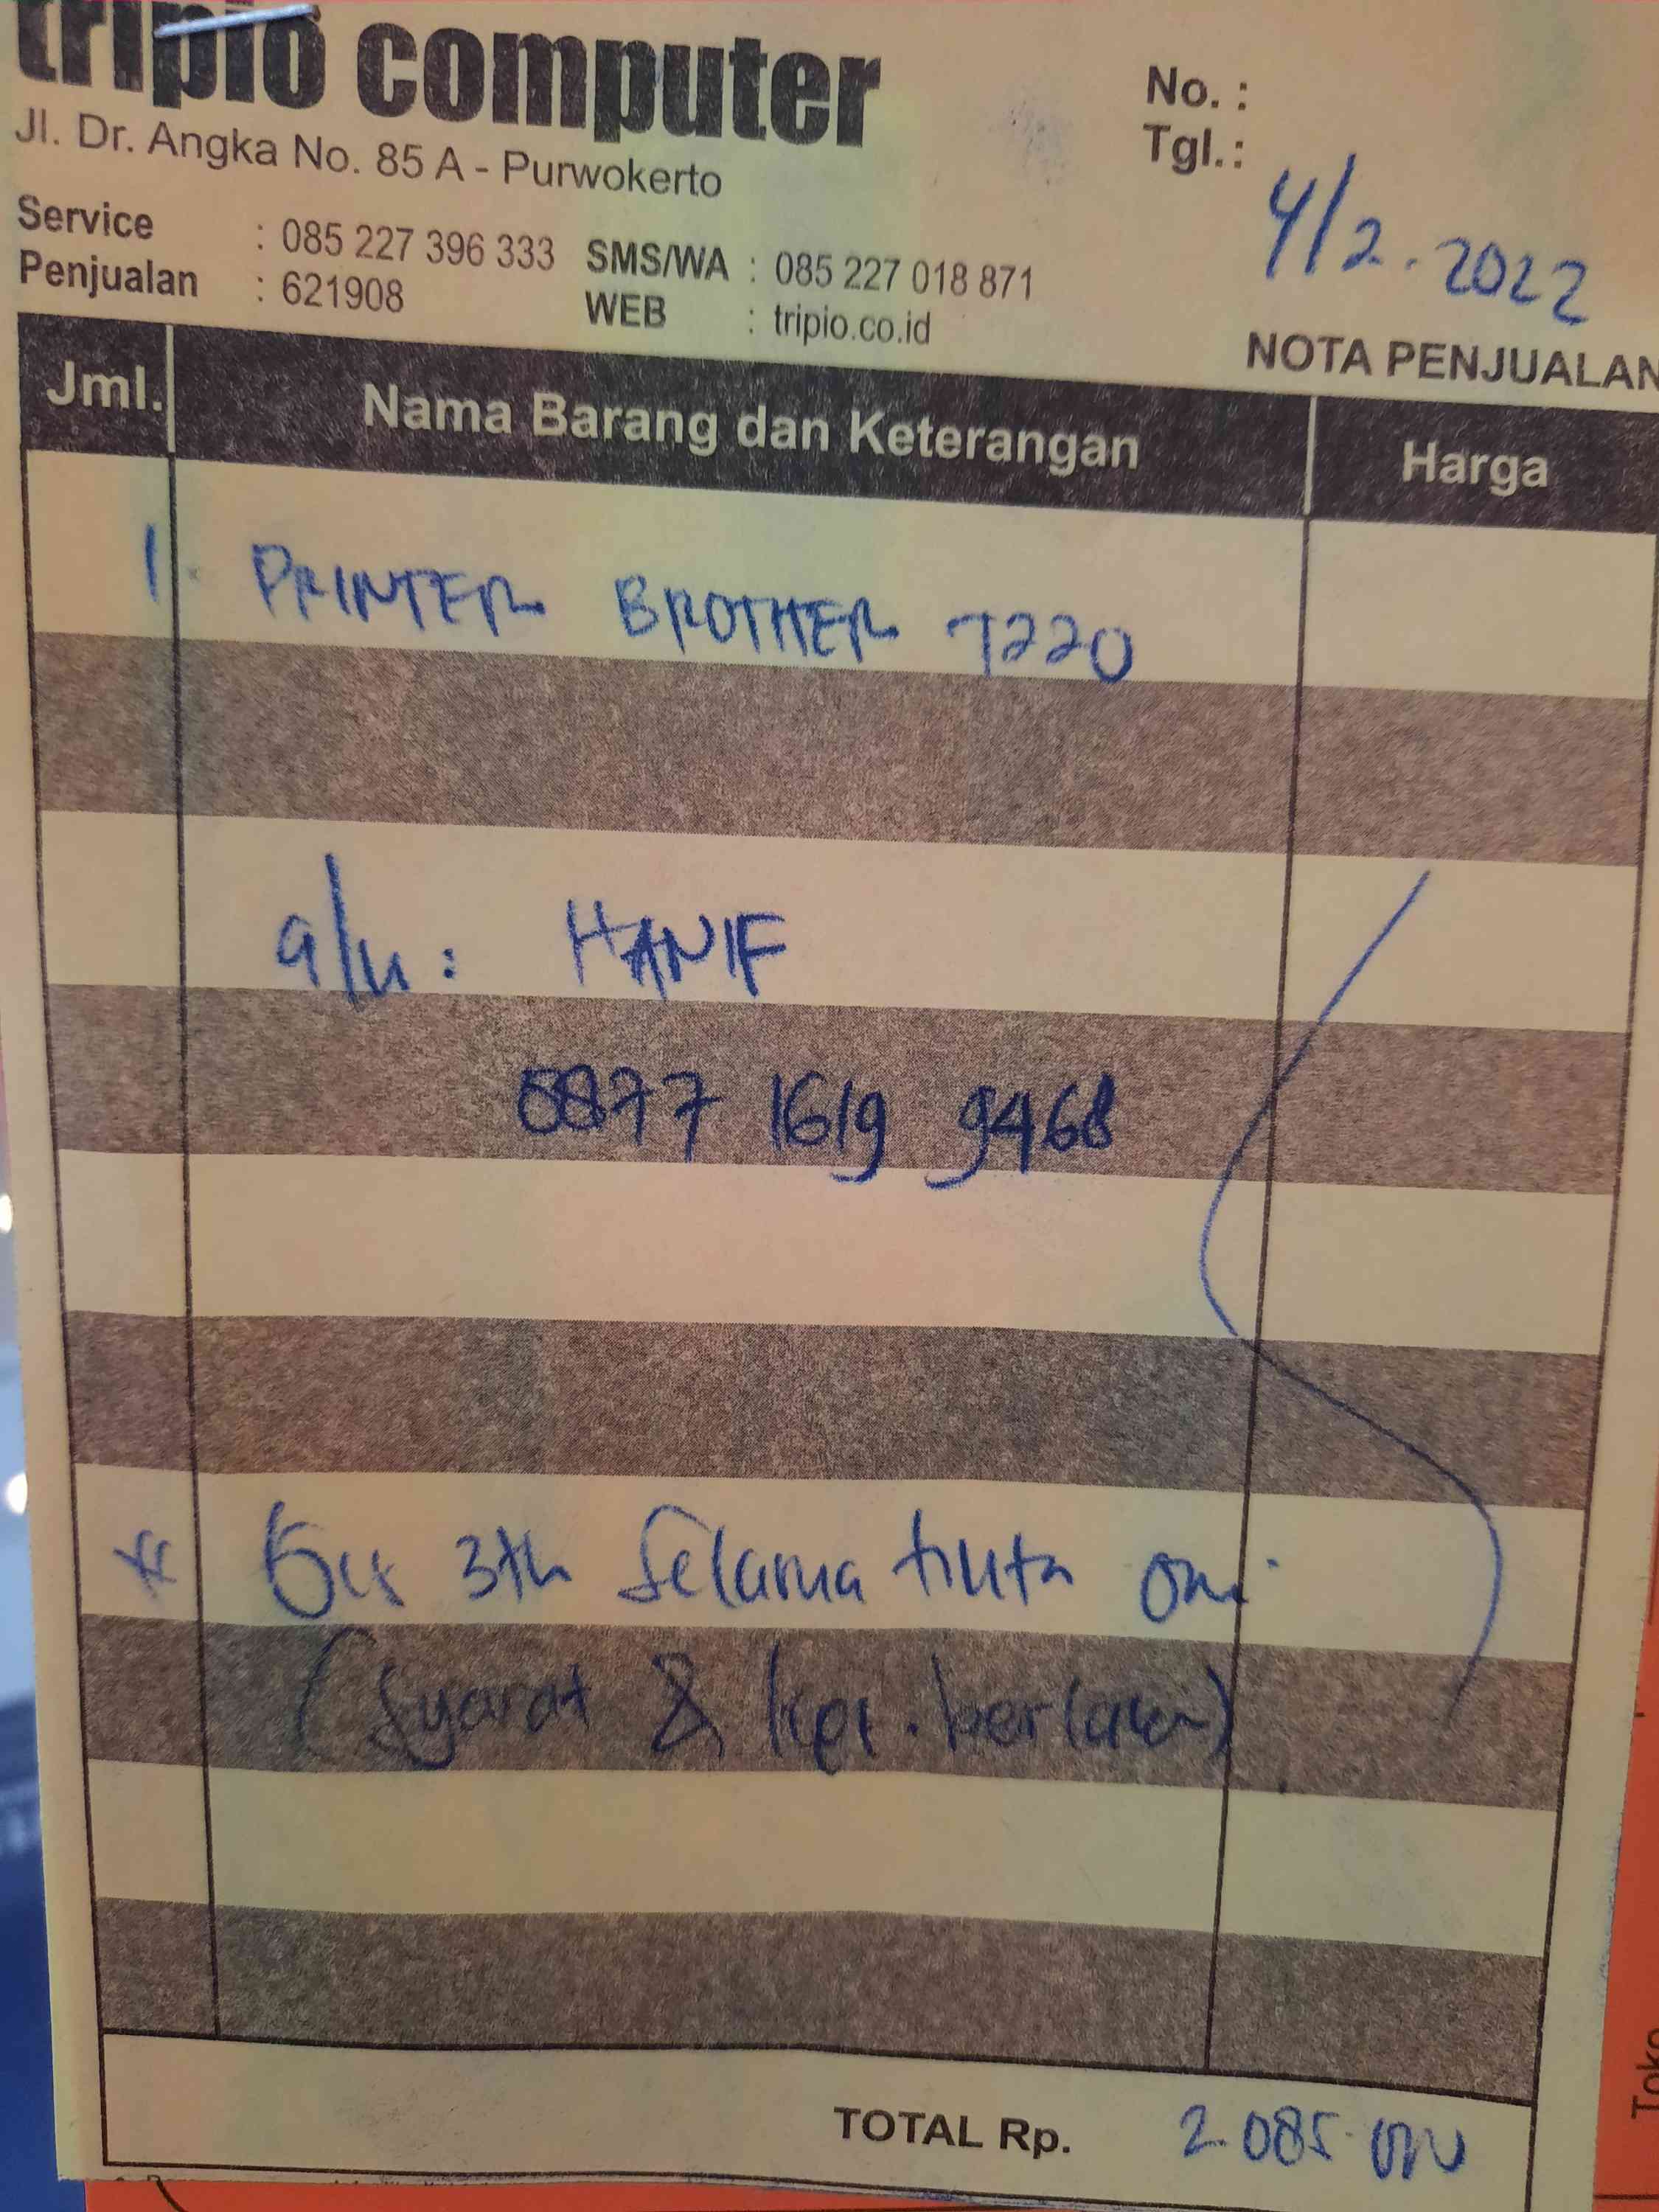 tripio computer
Jl. Dr. Angka No. 85 A - Purwokerto
No. :
Tgl.: 4/2.2022
Service : 085 227 396 333 SMS/WA : 085 227 018 871
Penjualan : 621908 WEB : tripio.co.id
NOTA PENJUALAN
Jml. Nama Barang dan Keterangan Harga
1. PRINTER BROTHER T220
a/n : HANIF
0877 1619 9468
3th selama tinta ori
(syarat & ket. berlaku)
TOTAL Rp. 2.085.000
Toko